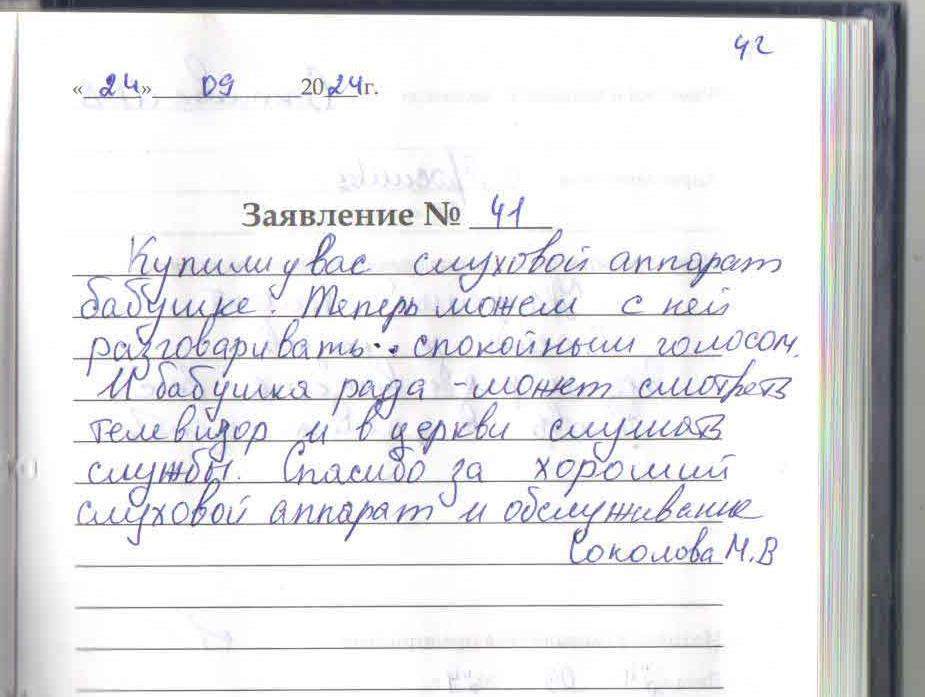 42
« 24 » 09 2024 г.
Заявление № 41
Купили у вас слуховой аппарат
бабушке. Теперь можем с ней
разговаривать спокойным голосом.
И бабушка рада - может смотреть
телевизор и в церкви слушать
службы. Спасибо за хороший
слуховой аппарат и обслуживание
Соколова М.В